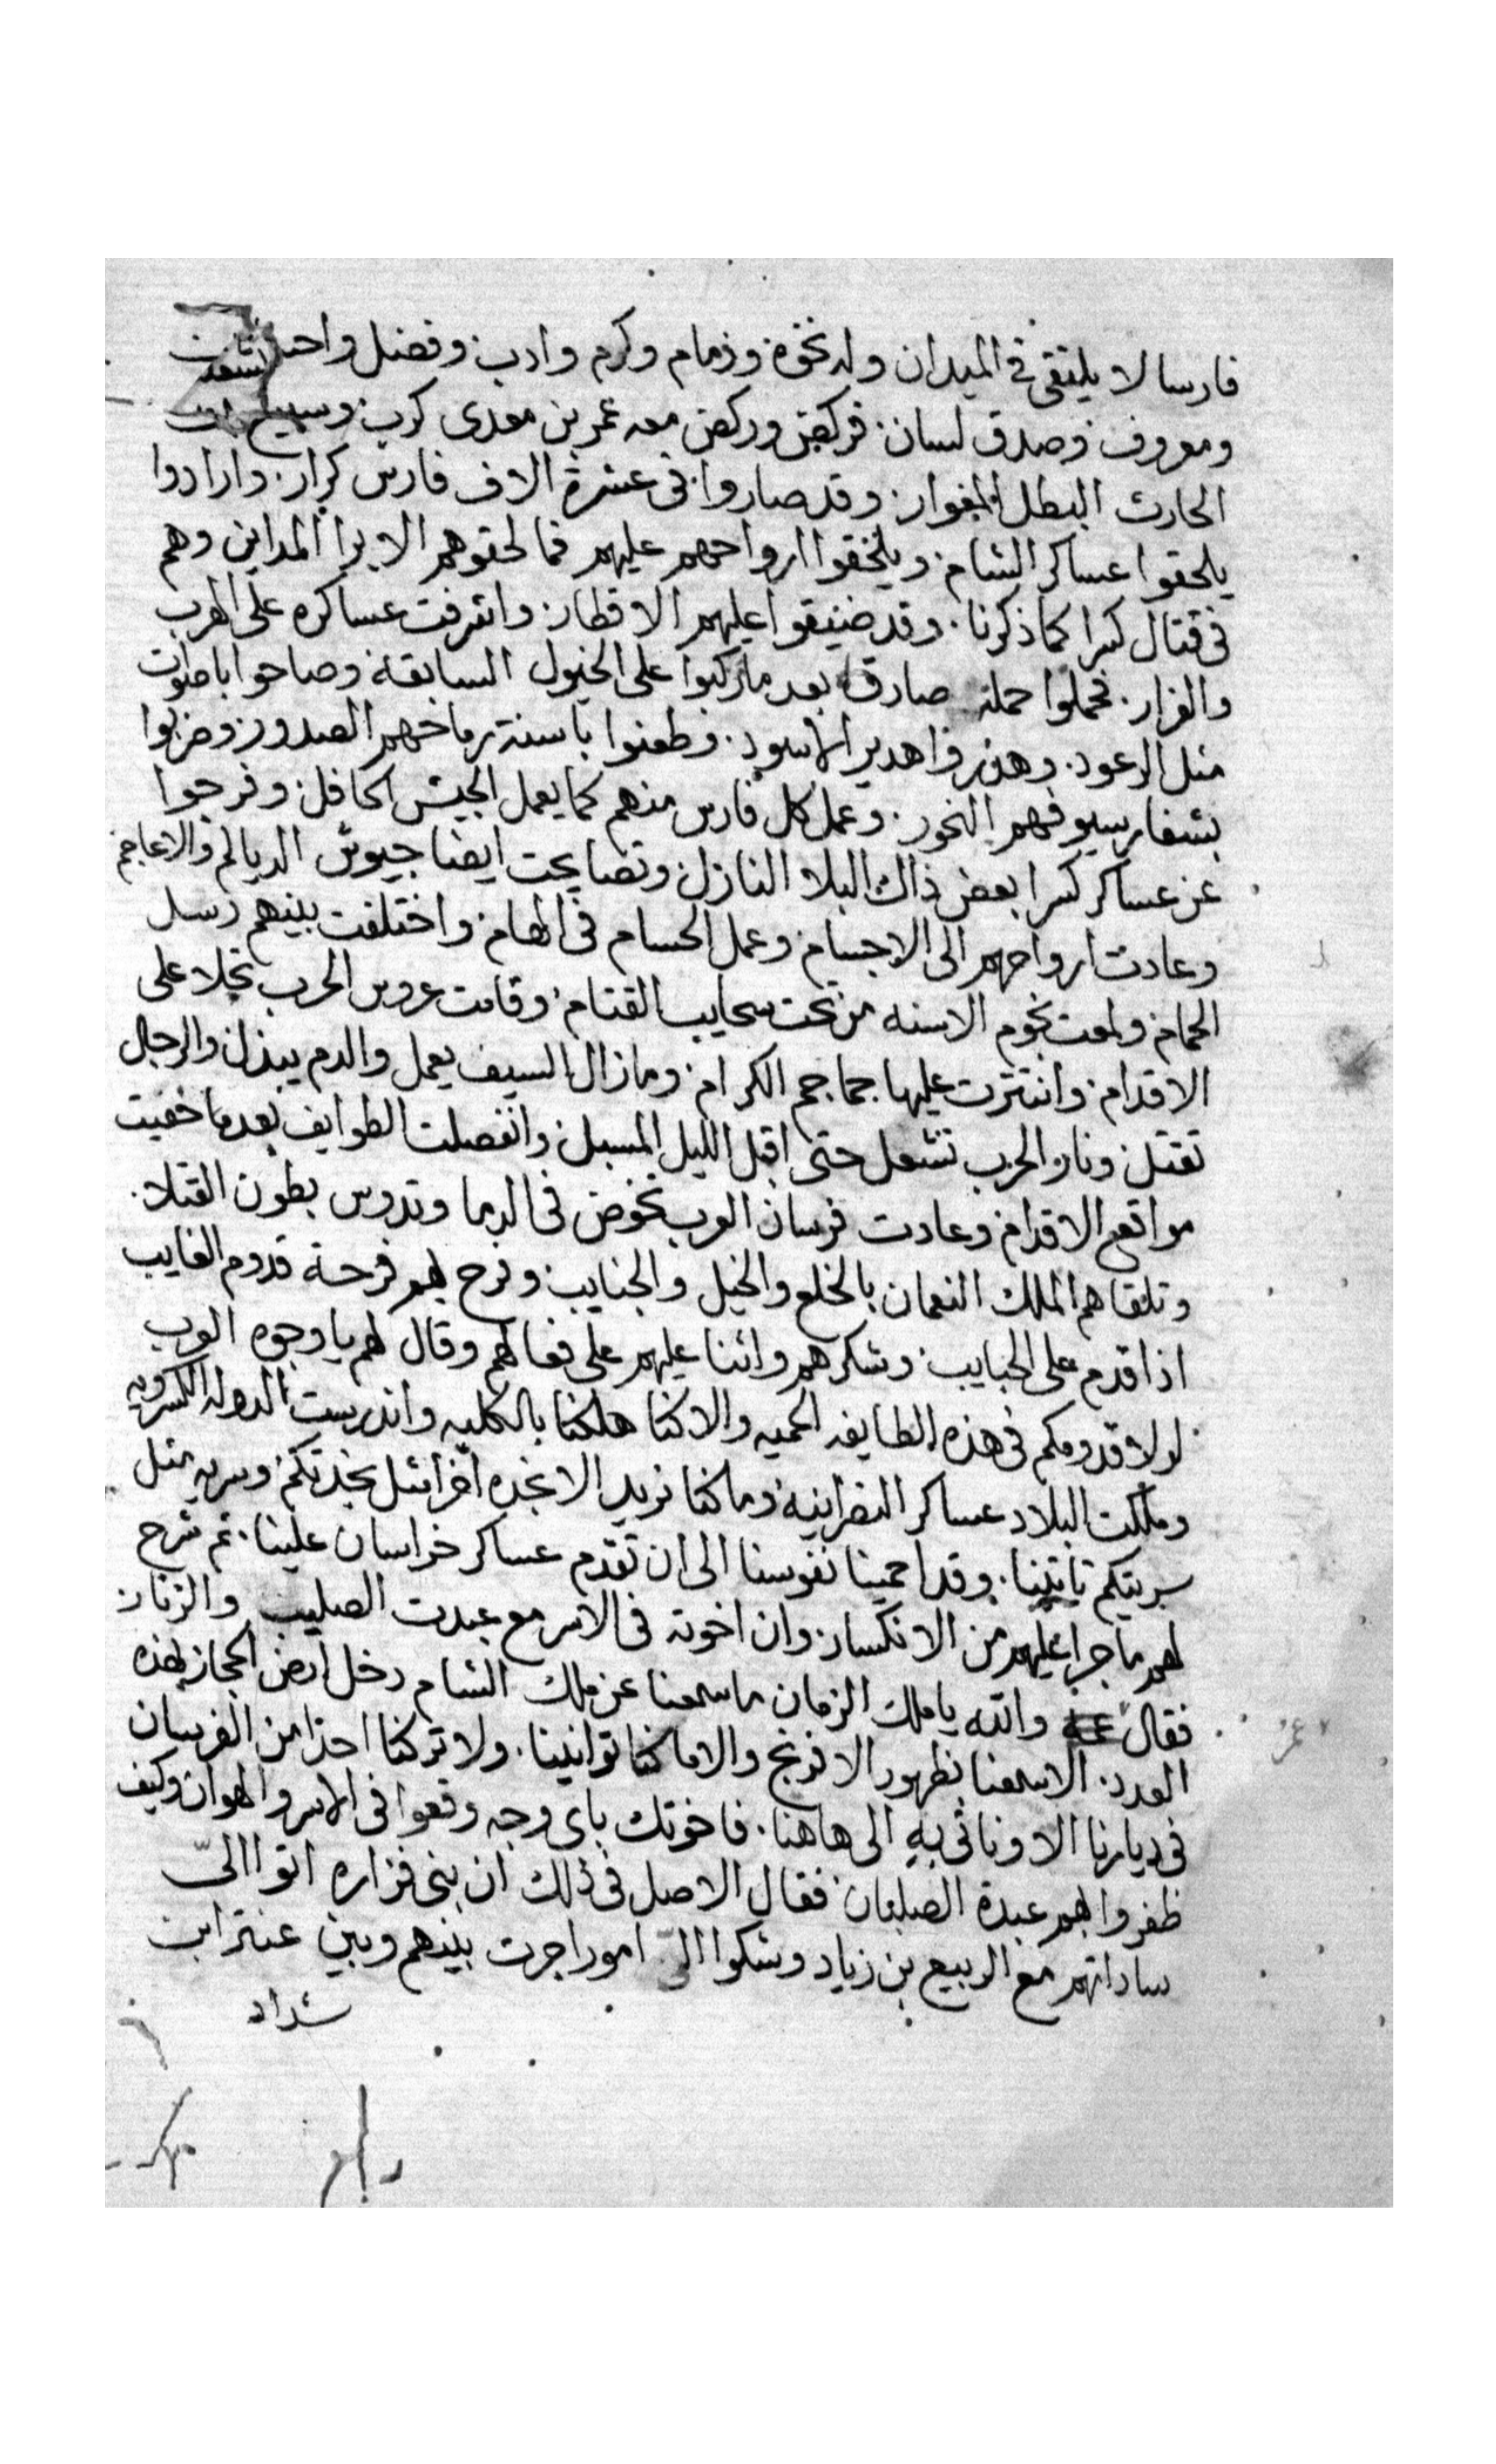 فارسا لا يلتقى فى الميدان وله نخوة وذمام وكرم وادب وفضل
ومعروف وصدق لسان فركض وركض معه عمر بن معدى كرب وسبيع
الحارث البطل المغوار وقد صاروا فى عشرة الاف فارس كرار وارادوا
يلحقوا عساكر الشام ويلحقوا ارواحهم عليهم فما لحقوهم الا برا المداين وهم
فى قتال كسرا كما ذكرنا وقد ضيقوا عليهم الاقطار واشرفت عساكره على الهرب
والفرار فحملوا حملة صادقة بعد ما ركبوا على الخيول السابقة وصاحوا باصوات
مثل الرعود وهدروا هدير الاسود وطعنوا باسنة رماحهم الصدور وضربوا
بشفار سيوفهم النحور وعمل كل فارس منهم كما يعمل الجيش الحافل وفرجوا
عن عساكر كسرا بعض ذاك البلا النازل وتصايحت ايضا جيوش الديالم والاعاجم
وعادت ارواحهم الى الاجسام وعمل الحسام فى الهام واختلفت بينهم رسل
الحمام ولمعت نجوم الاسنه من تحت سحايب القتام وقامت عروس الحرب تجلا على
الاقدام وانتثرت عليها جماجم الكرام وما زال السيف يعمل والدم يبذل والرجال
تقتل ونار الحرب تشعل حتى اقبل الليل المسبل وانفصلت الطوايف بعد ما خفيت
مواقع الاقدام وعادت فرسان العرب تخوض فى الدما وتدوس بطون القتلا
وتلقاهم الملك النعمان بالخلع والخيل والجنايب وفرح بهم فرحة قدوم الغايب
اذا قدم على الحبايب وشكرهم واثنا عليهم على فعالهم وقال لهم يا وجوه العرب
لولا قدومكم فى هذه الطايفه الحميه والا كنا هلكنا بالكليه واندرست الدوله الكسرويه
وملكت البلاد عساكر النصرانية وما كنا نريد الا نجده مثل نجدتكم وسريه مثل
سريتكم تاتينا وقد احمينا نفوسنا الى ان تقدم عساكر خراسان علينا ثم شرح
لهم ما جرا عليهم من الانكسار وان اخوته فى الاسر مع عبدت الصليب والزنار
فقال والله يا ملك الزمان ما سمعنا عن ملك الشام دخل ارض الحجاز بهذه
العدد الا سمعنا بظهور الافرنج والا ما كنا توانينا ولا تركنا احدا من الفرسان
فى ديارنا الا وناتى به الى هاهنا فاخوتك باى وجه وقعوا فى الاسر والهوان وكيف
ظفروا بهم عبدة الصلبان فقال الاصل فى ذلك ان بنى فزاره اتوا الىّ
ساداتهم مع الربيع بن زياد وشكوا الىّ امورا جرت بينهم وبين عنتر ابن
شداد